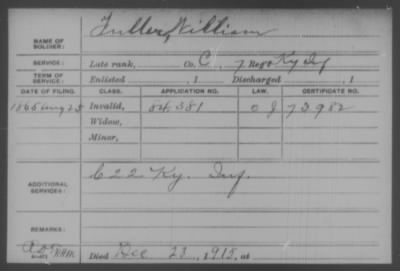 Fuller, William
NAME OF SOLDIER:
SERVICE: Late rank, Co. C, 7 Reg't Ky Inf
TERM OF SERVICE: Enlisted , 1 Discharged , 1
DATE OF FILING. CLASS. APPLICATION NO. LAW. CERTIFICATE NO.
1865 Aug 25 Invalid, 84.381 73.982
Widow,
Minor,
C 22 Ky. Inf.
ADDITIONAL SERVICES:
REMARKS:
Died Dec 23, 1915, at